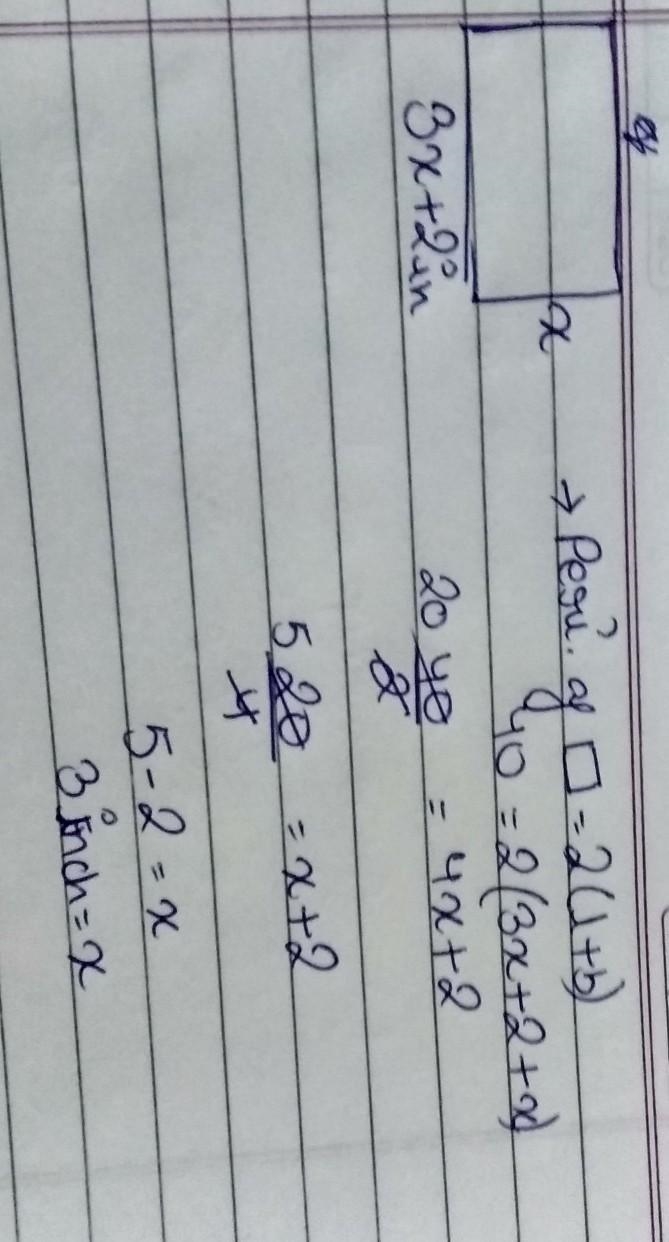 x
3x+2in
→ Peri. of □ = 2(l+b)
40 = 2(3x+2+x)
20 40/2 = 4x+2
5 20/4 = x+2
5-2 = x
3 inch = x